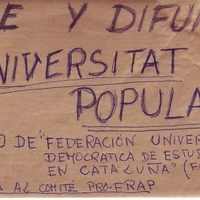 E Y DIFU
NIVERSITAT
POPULA
O DE "FEDERACIÓN UNIVER
DEMOCRATICA DE ESTU
EN CATALUÑA" (F
A AL COMITÉ PRO-FRAP